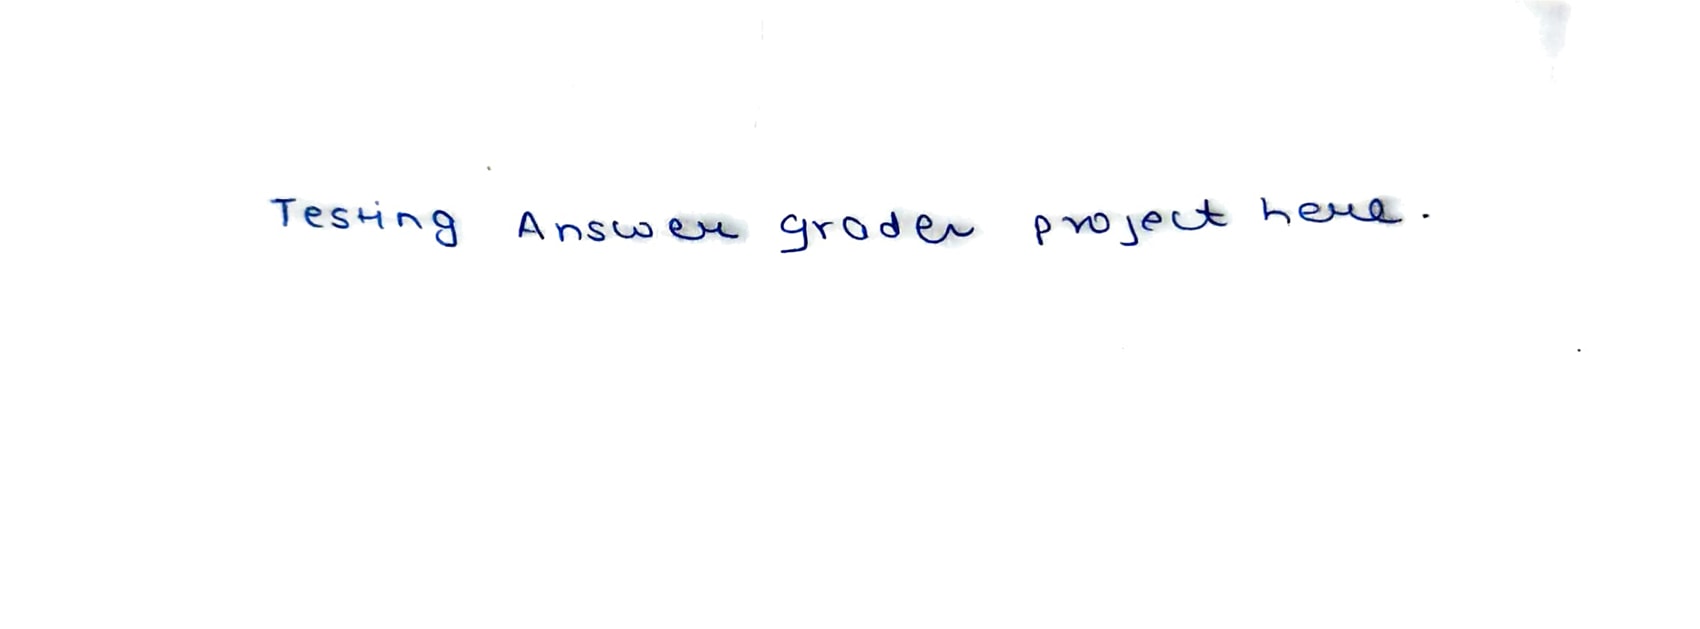 Testing Answer grader project here.